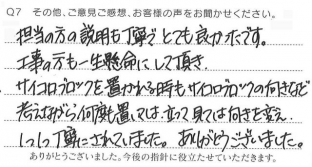 Q7 その他、ご意見ご感想、お客様の声をお聞かせください。
担当の方の説明も丁寧で とても良かったです。
工事の方も一生懸命にして頂き、
サイコロブロックを置かれる時もサイコロブロックの向きなど
考えながら何度も置いては、立って見ては向きを変え、
丁寧にされていました。 ありがとうございました。
ありがとうございました。今後の指針に役立たせていただきます。